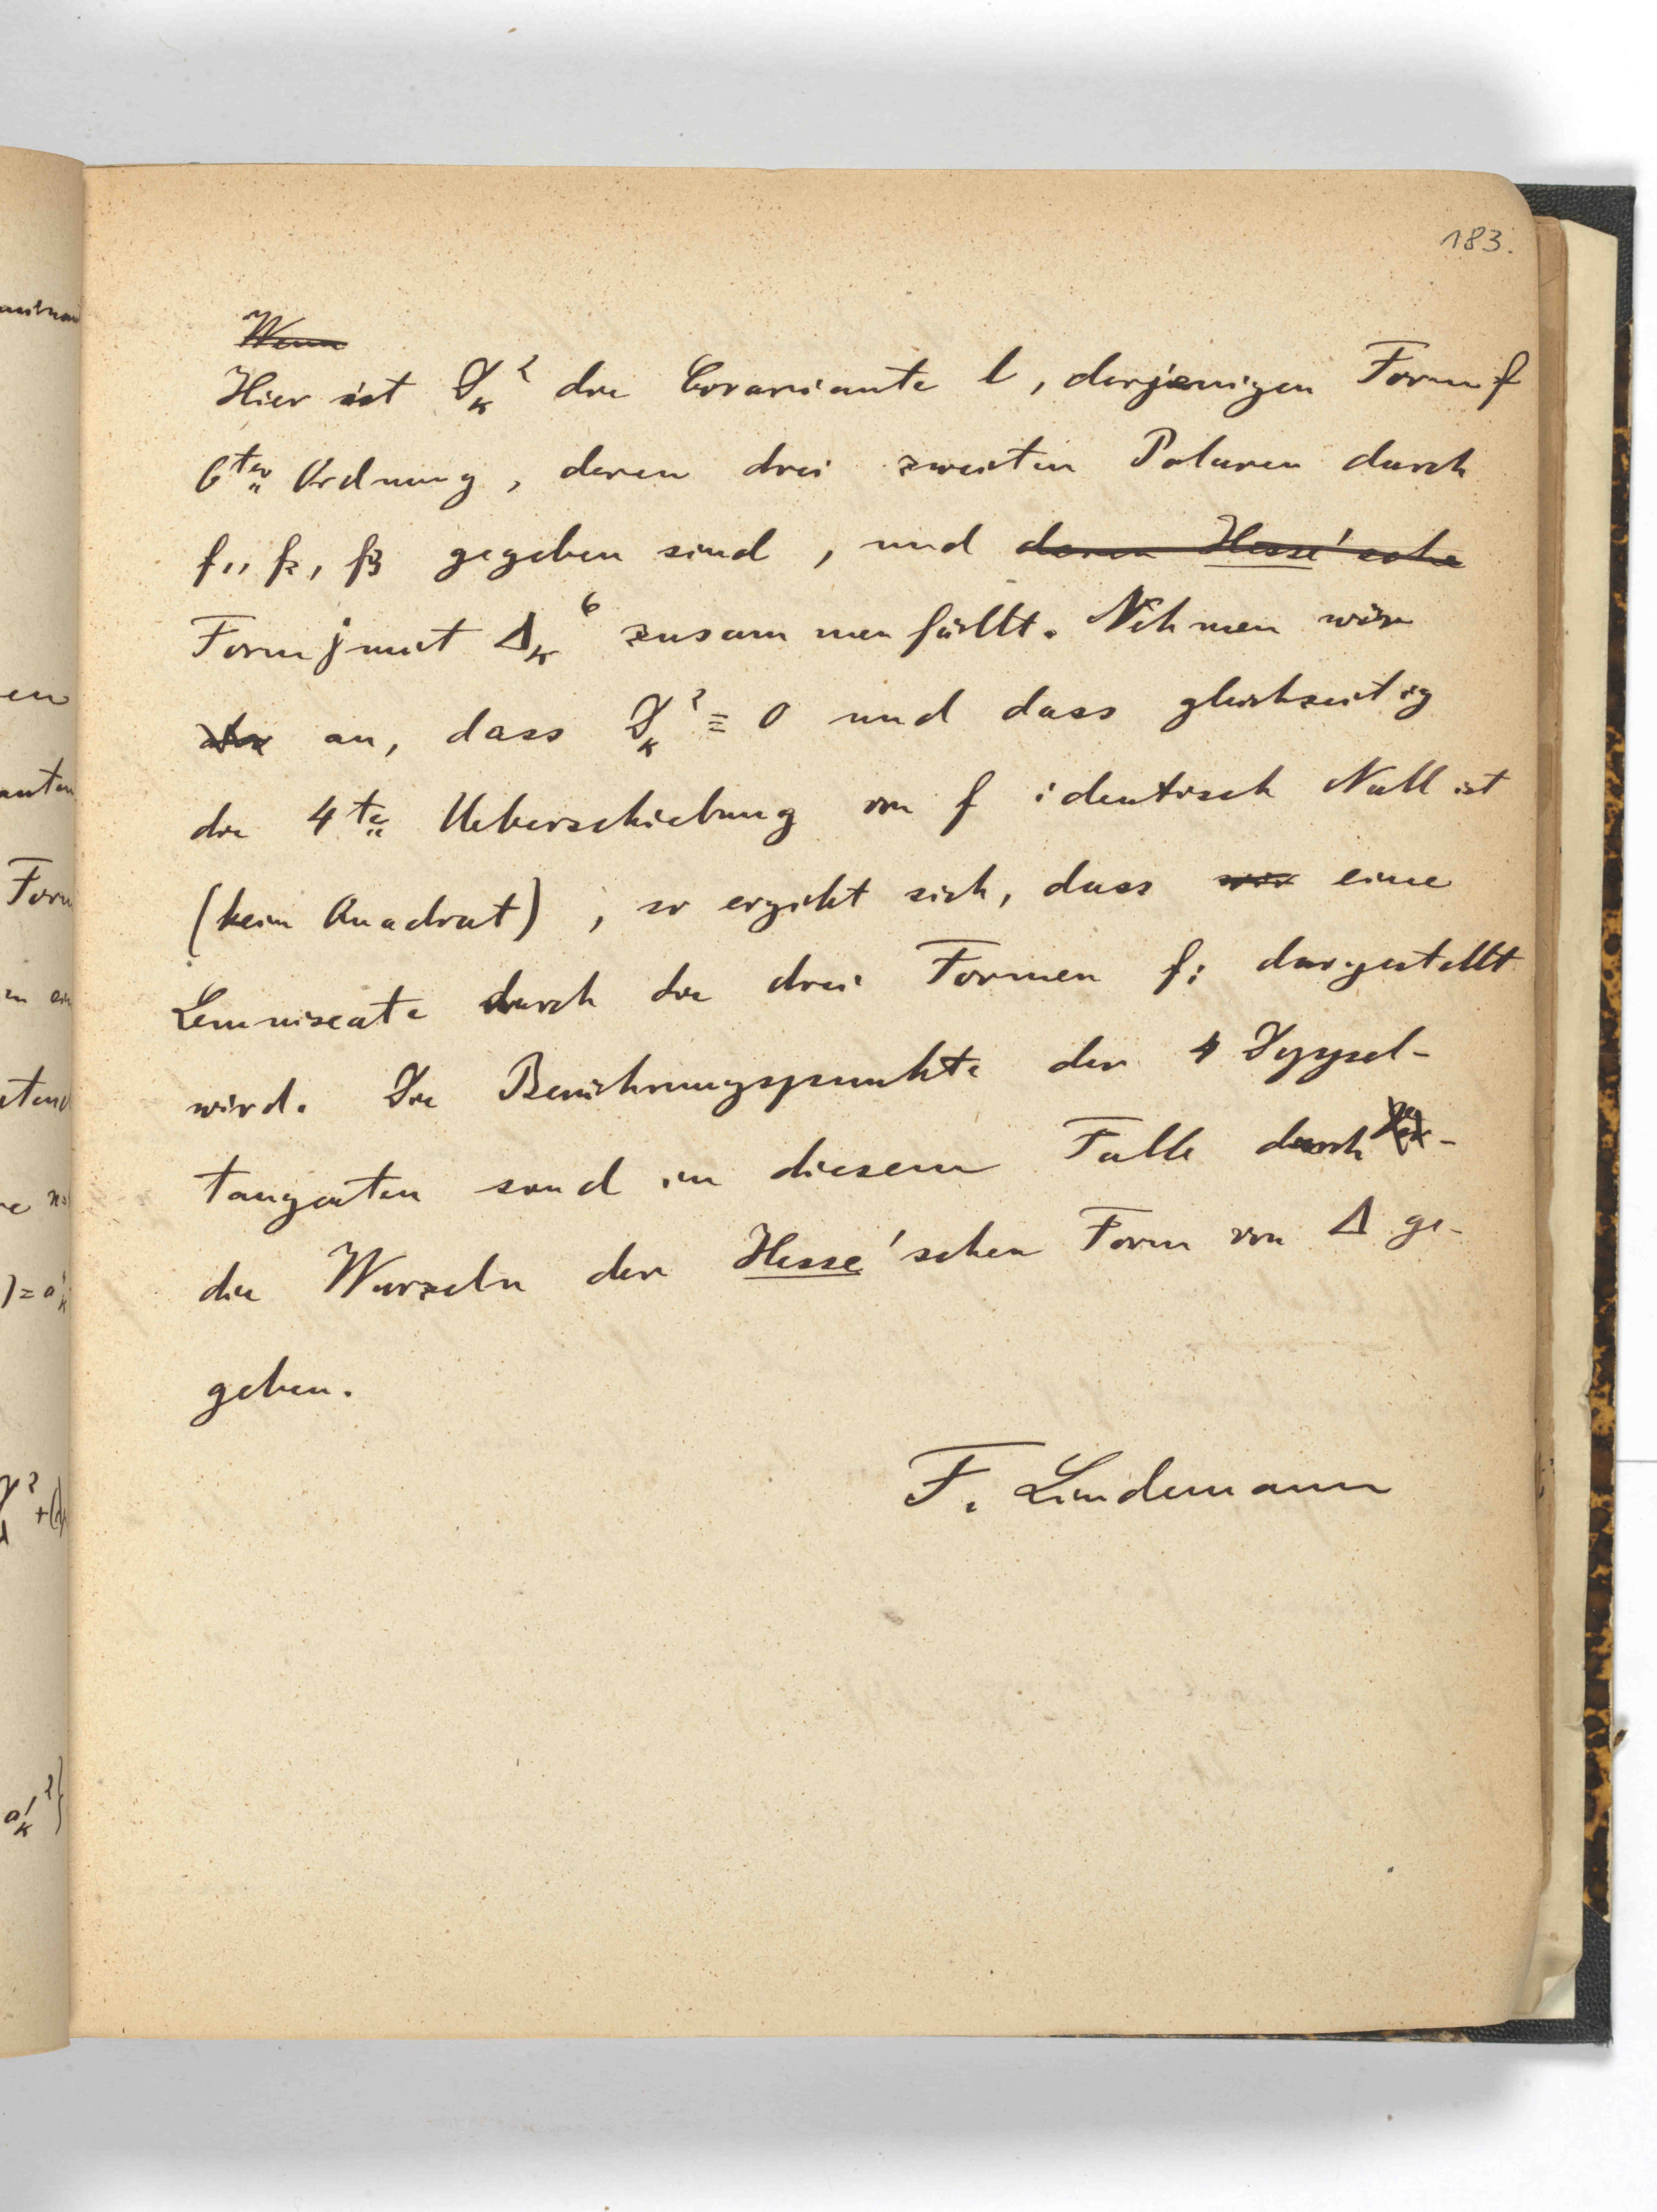 183.
Wenn
Hier ist ϑ_κ^2 die Covariante l, derjenigen Form f
6ter Ordnung, deren drei zweiten Polaren durch
f1, f2, f3 gegeben sind, und deren Hesse'sche
Form j mit Δ_κ^6 zusammenfällt. Nehmen wir
an, dass ϑ_κ^2 ≡ 0 und dass gleichzeitig
die 4te Ueberschiebung von f identisch Null ist
(kein Quadrat), so ergibt sich, dass wir eine
Lemniscate durch die drei Formen fi dargestellt
wird. Die Berührungspunkte der 4 Doppel-
tangenten sind in diesem Falle durch
die Wurzeln der Hesse'schen Form von Δ ge-
geben.
F. Lindemann
en
Form
)= a'κ
a'κ^2}